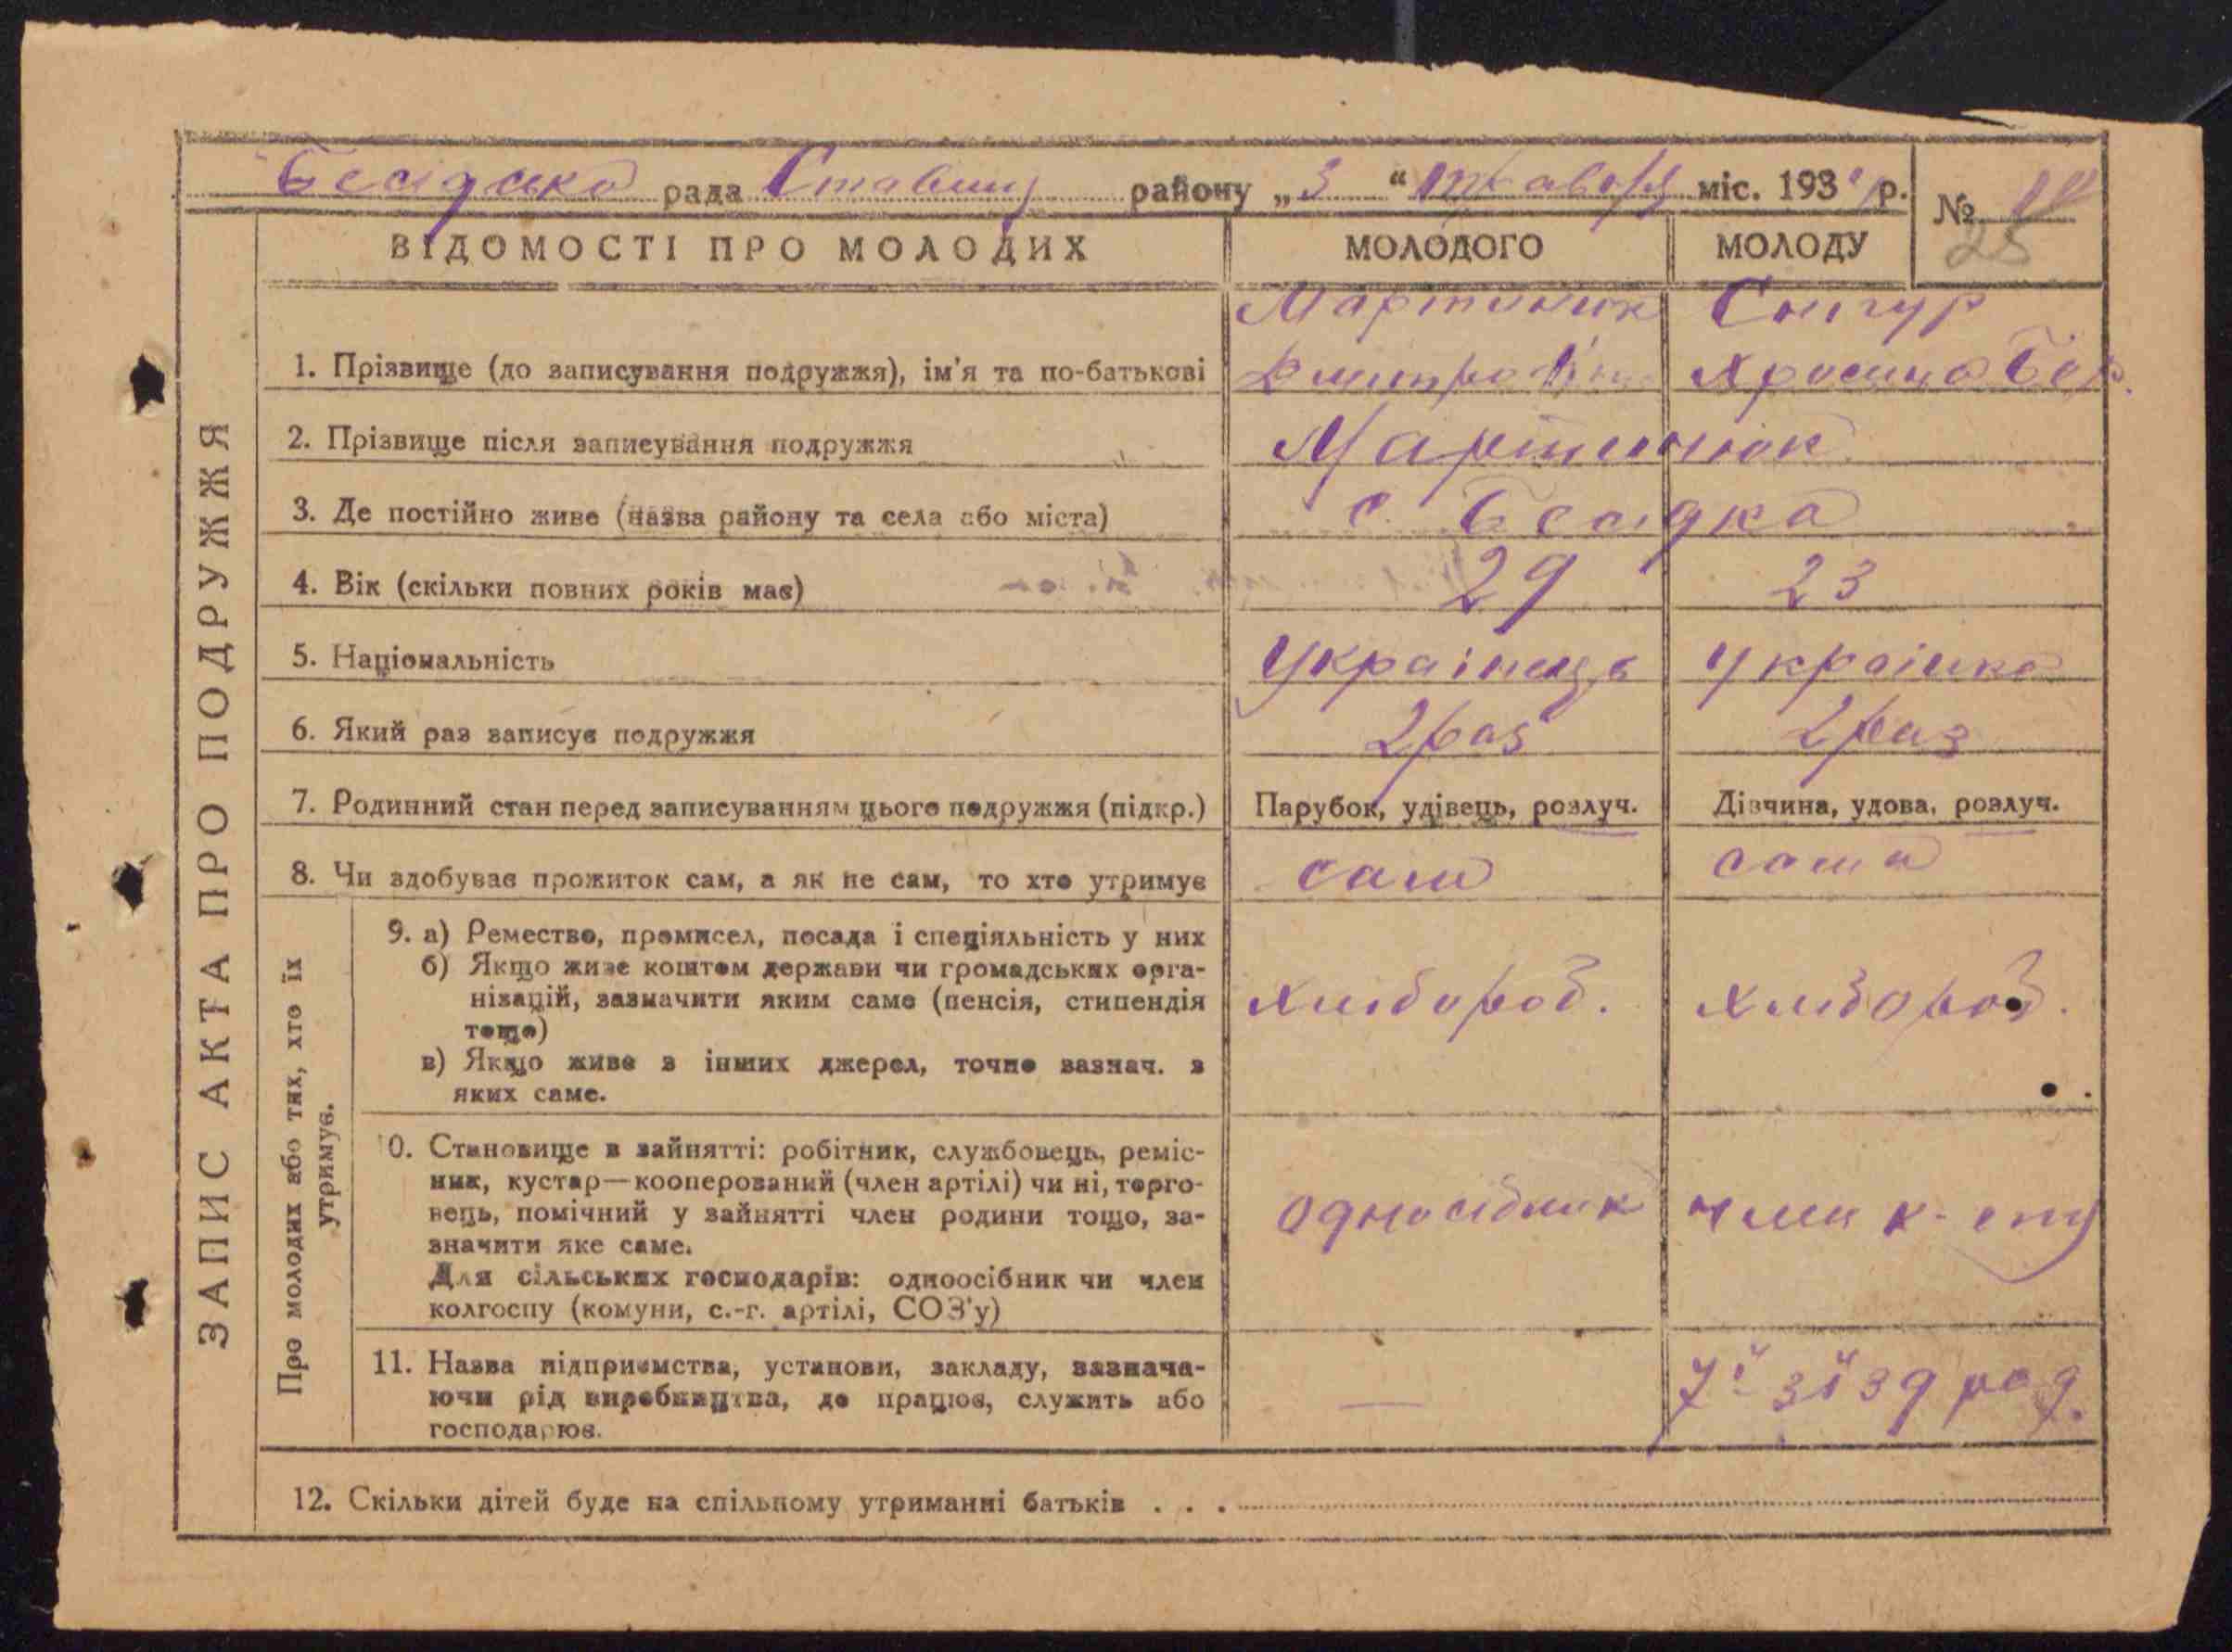 Бесідська рада Ставищ району „3“ міс. 193 р.
№
28
ЗАПИС АКТА ПРО ПОДРУЖЖЯ
ВІДОМОСТІ ПРО МОЛОДИХ МОЛОДОГО МОЛОДУ
Мартинюк Снігур
1. Прізвище (до записування подружжя), ім'я та по-батькові Дмитро Хросина
2. Прізвище після записування подружжя Мартинюк
3. Де постійно живе (назва району та села або міста) с. Бесідка
4. Вік (скільки повних років має) 29 23
5. Національність Українець Українка
6. Який раз записує подружжя 2 раз 2 раз
7. Родинний стан перед записуванням цього подружжя (підкр.) Парубок, удівець, розлуч. Дівчина, удова, розлуч.
8. Чи здобуває прожиток сам, а як не сам, то хто утримує сам сама
Про молодих або тих, хто їх
утримує.
9. а) Ремество, промисел, посада і спеціяльність у них
б) Якщо живе коштом держави чи громадських орга-
нізацій, зазначити яким саме (пенсія, стипендія хлібороб. хлібороб.
тощо)
в) Якщо живе з інших джерел, точно зазнач. з
яких саме.
10. Становище в зайнятті: робітник, службовець, реміс-
ник, кустар—кооперований (член артілі) чи ні, торго-
вець, помічний у зайнятті член родини тощо, за- односібник член к-спу
значити яке саме.
Для сільських господарів: одноосібник чи член
колгоспу (комуни, с.-г. артілі, СОЗ'у)
11. Назва підприємства, установи, закладу, зазнача-
ючи рід виробництва, де працює, служить або — 7й зїзд рад.
господарює.
12. Скільки дітей буде на спільному утриманні батьків . . .